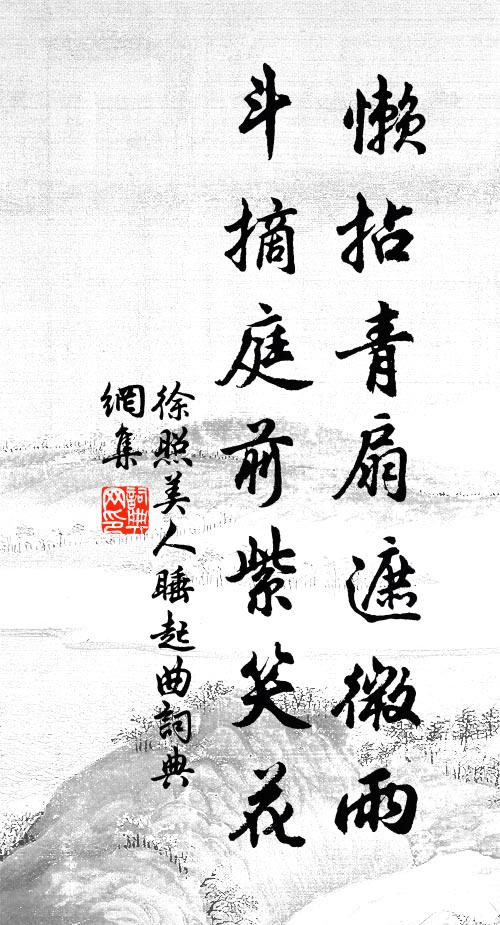 懶拈青扇遮微雨
斗摘庭前紫笑花
徐照美人睡起曲詞典
網集
詞典
网印